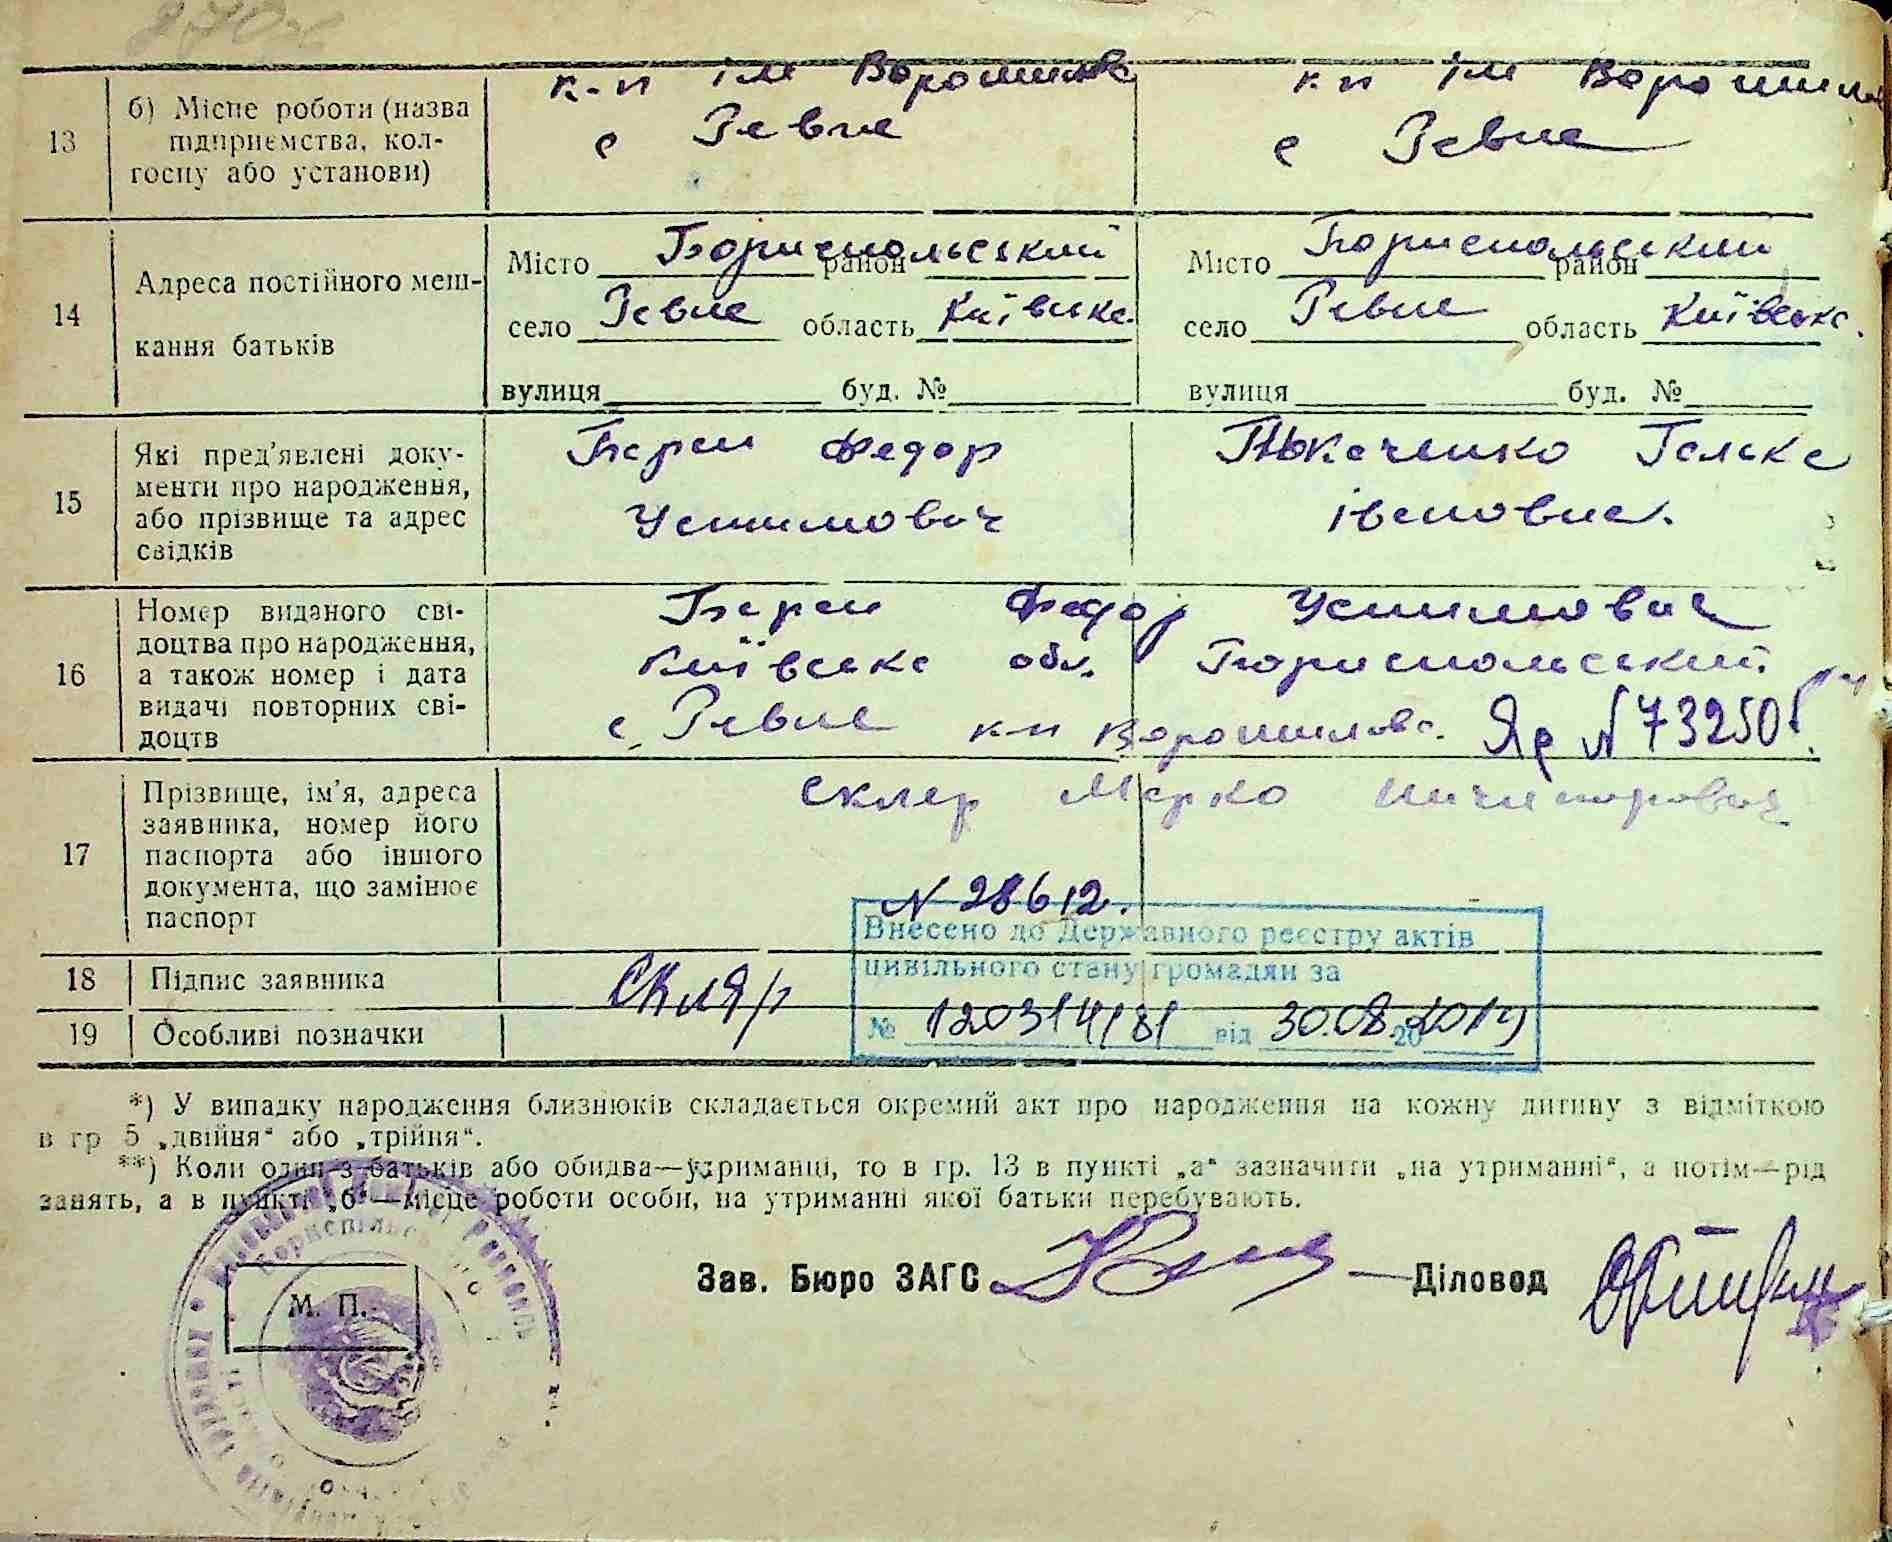 к-п ім Ворошилова к-п ім Ворошилова
13 б) Місце роботи (назва підприємства, колгоспу або установи)
с Ревне с Ревне
14 Адреса постійного мешкання батьків
Місто Бориспольський район Місто Бориспольський район
село Ревне область Київська село Ревне область Київська
вулиця буд. № вулиця буд. №
15 Які пред'явлені документи про народження, або прізвище та адрес свідків
Федор Галька
Устимович івановна.
16 Номер виданого свідоцтва про народження, а також номер і дата видачі повторних свідоцтв
Федор Устимович
Київська обл. Бориспольський
с. Ревне к-п Ворошилова. № 73250
17 Прізвище, ім'я, адреса заявника, номер його паспорта або іншого документа, що замінює паспорт
Скляр Марко Ничипорович
N 28612.
Внесено до Державного реєстру актів
цивільного стану громадян за
№ 120314181 від 30.08.2019
18 Підпис заявника Скляр
19 Особливі позначки
*) У випадку народження близнюків складається окремий акт про народження на кожну дитину з відміткою
в гр 5 „двійня“ або „трійня“.
**) Коли один з батьків або обидва—утриманці, то в гр. 13 в пункті „а“ зазначити „на утриманні“, а потім—рід
занять, а в пункті „б“—місце роботи особи, на утриманні якої батьки перебувають.
М. П.
Зав. Бюро ЗАГС Діловод